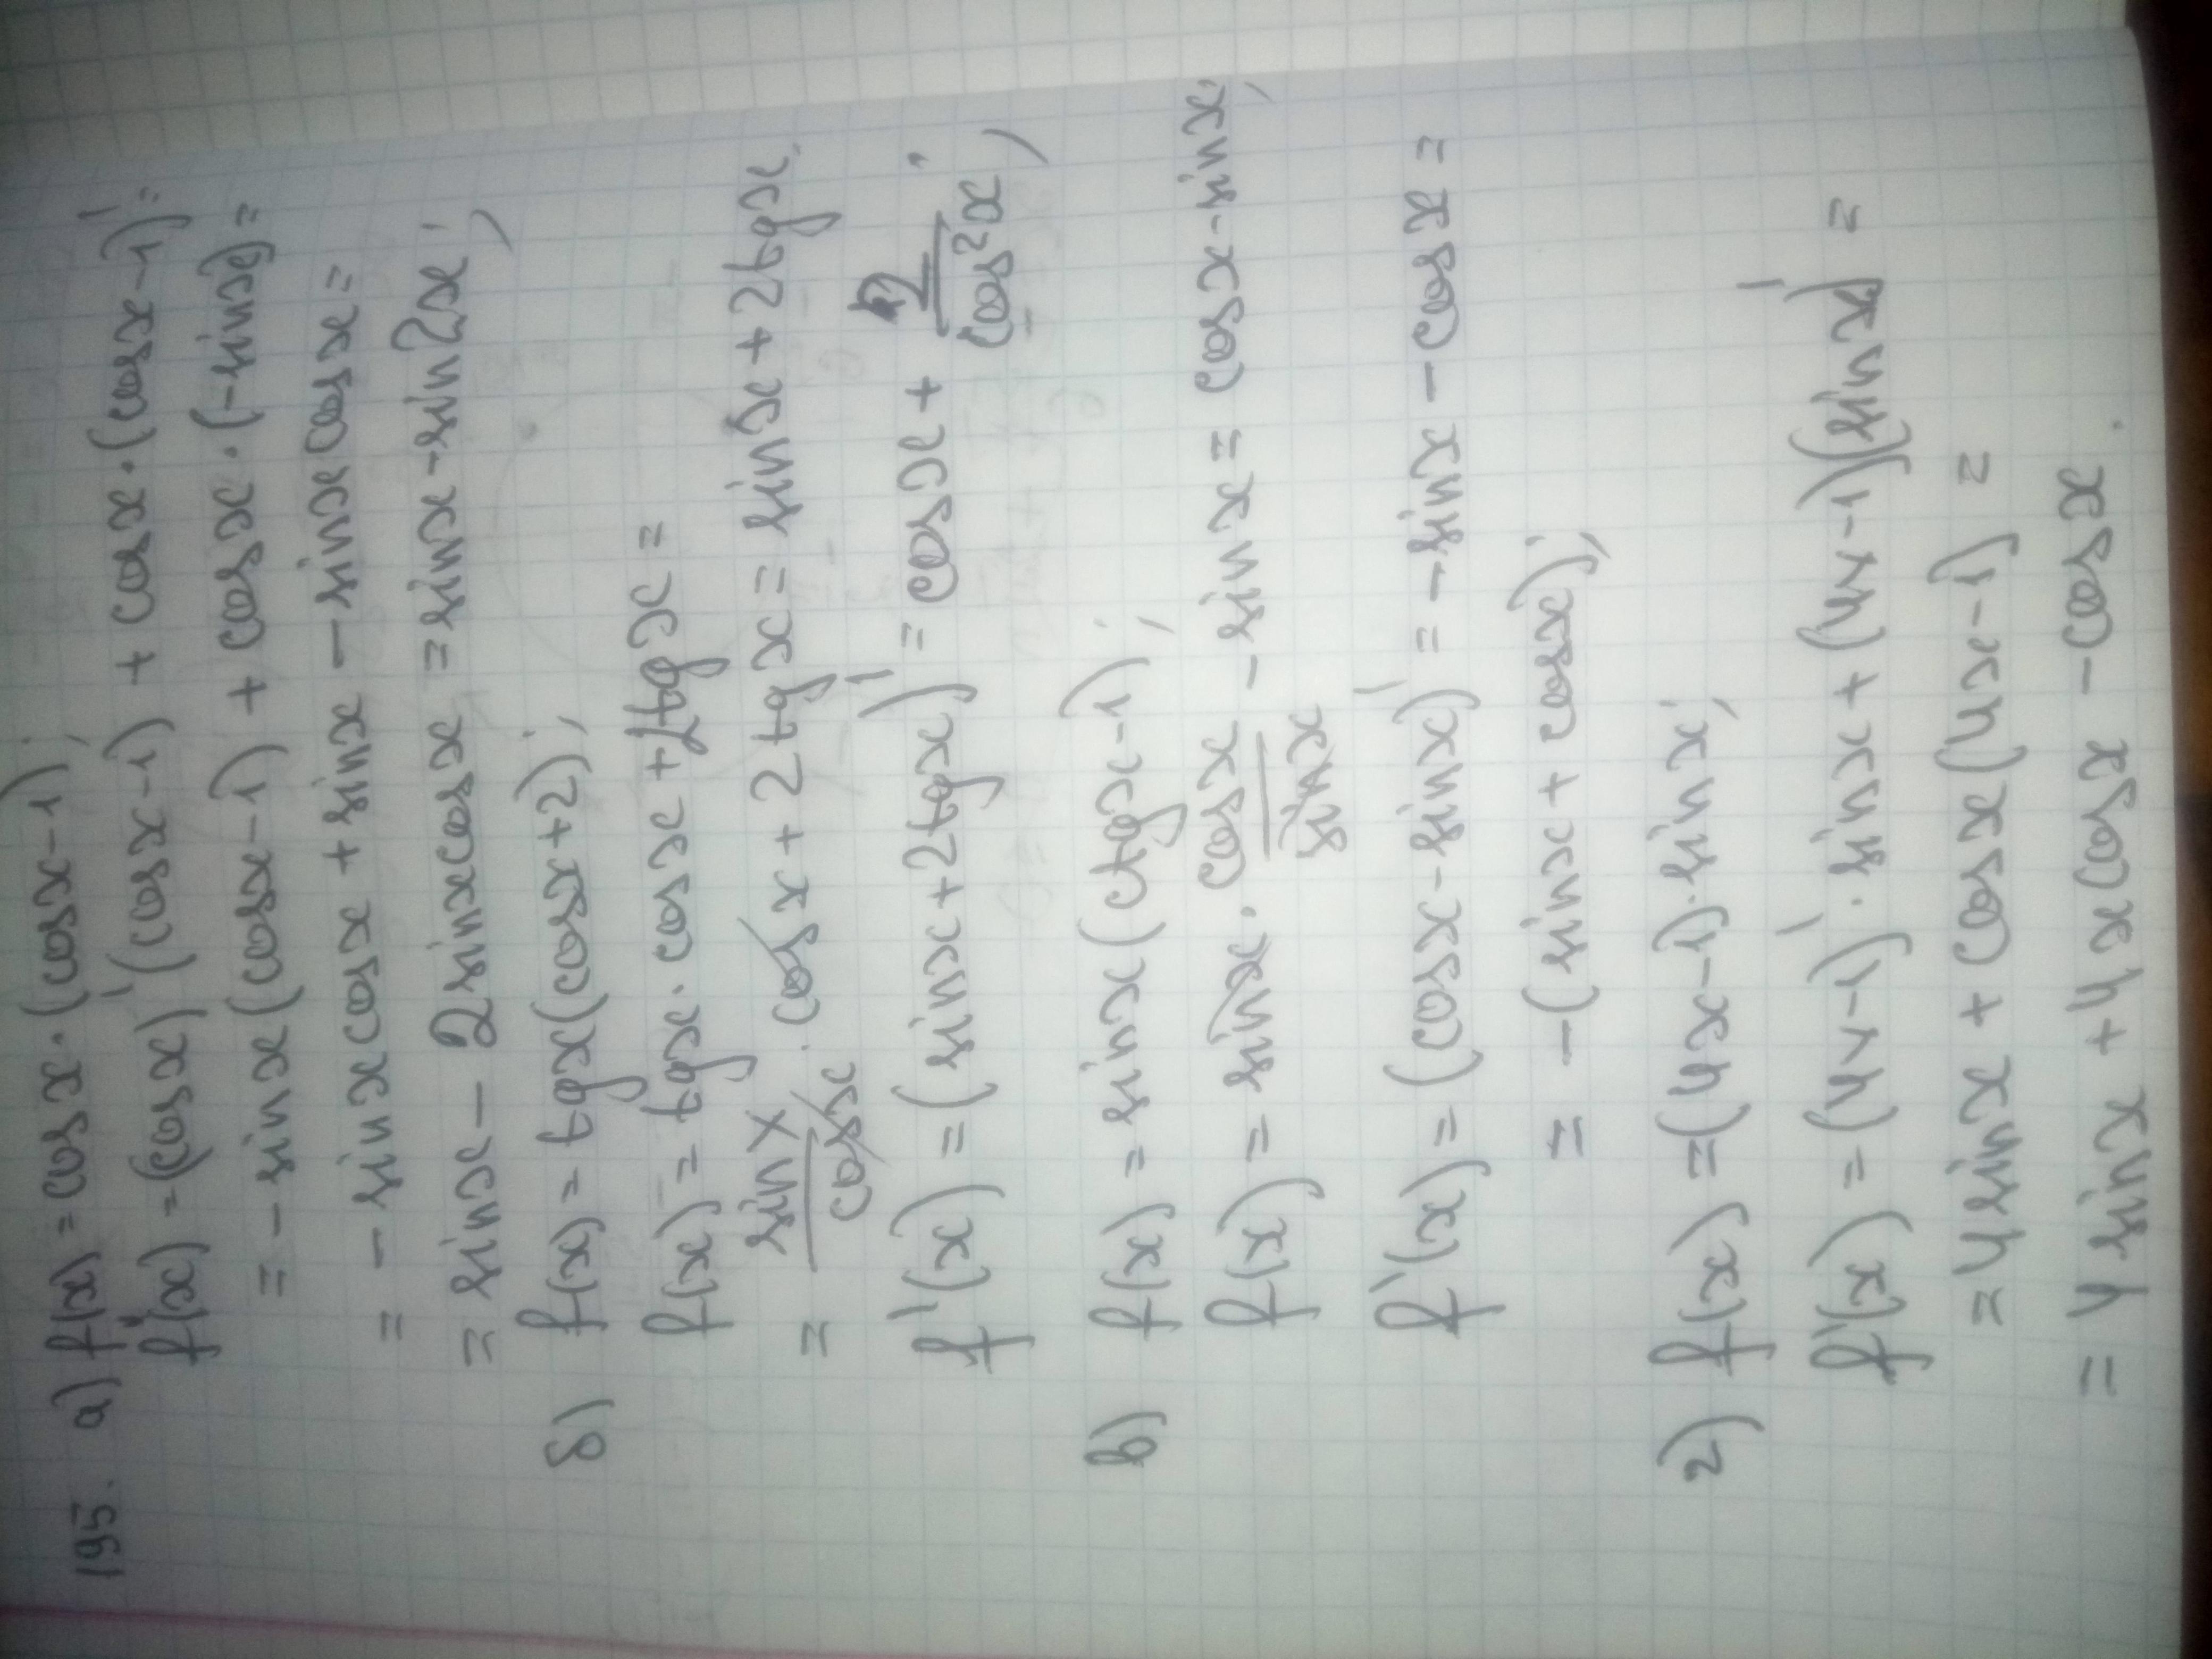 195. а) f(x) = cos x · (cos x - 1);
f'(x) = (cos x)' (cos x - 1) + cos x · (cos x - 1)' =
= - sin x (cos x - 1) + cos x · (- sin x) =
= - sin x cos x + sin x - sin x cos x =
= sin x - 2 sin x cos x = sin x - sin 2x;
б) f(x) = tg x (cos x + 2);
f(x) = tg x · cos x + 2tg x =
= sin x / cos x · cos x + 2 tg x = sin x + 2tg x,
f'(x) = (sin x + 2tg x)' = cos x + 2 / cos² x;
в) f(x) = sin x (ctg x - 1);
f(x) = sin x · cos x / sin x - sin x = cos x - sin x;
f'(x) = (cos x - sin x)' = - sin x - cos x =
= - (sin x + cos x);
г) f(x) = (4x - 1) · sin x;
f'(x) = (4x - 1)' · sin x + (4x - 1)(sin x)' =
= 4 sin x + cos x (4x - 1) =
= 4 sin x + 4x cos x - cos x.